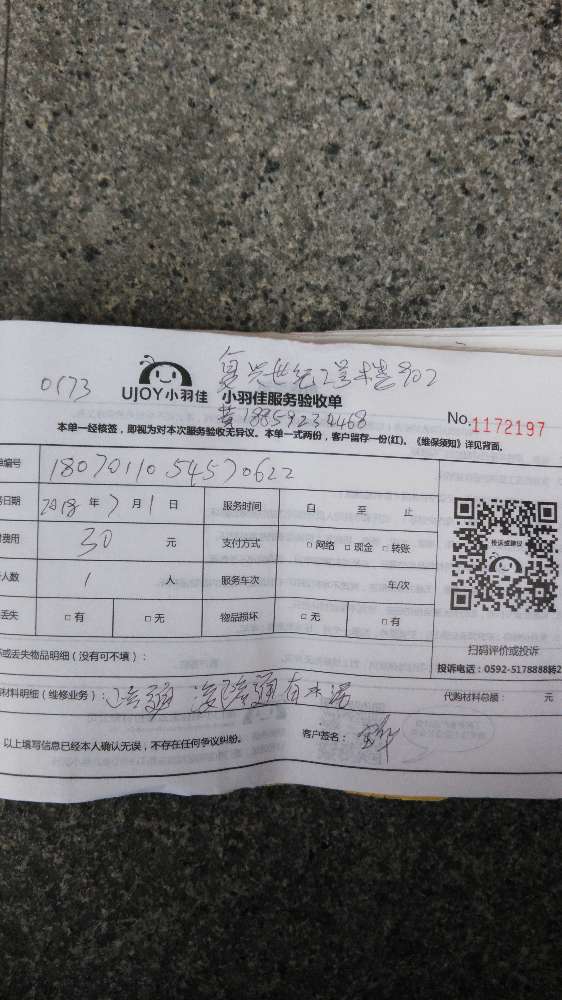 复兴世纪2号楼902
0173
UJOY小羽佳 小羽佳服务验收单
黄18859234468
No.1172197
本单一经核签，即视为对本次服务验收无异议。本单一式两份，客户留存一份(红)。《维保须知》详见背面。
单编号 1807011054570622
务日期 2018年7月1日 服务时间 自 至 止
费用 30 元 支付方式 □网络 □现金 □转账
人数 1 人 服务车次 车/次
丢失 □有 □无 物品损坏 □无 □有
投诉或建议
扫码评价或投诉
坏或丢失物品明细（没有可不填）：
投诉电话：0592-5178888转2
材料明细（维修业务）： 有水 代购材料总额： 元
以上填写信息已经本人确认无误，不存在任何争议纠纷。 客户签名：